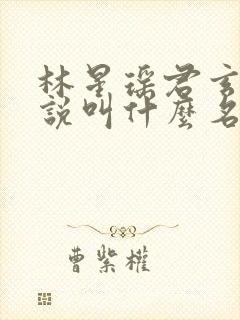 林星瑶君玄
說叫什麼名
曹紫權